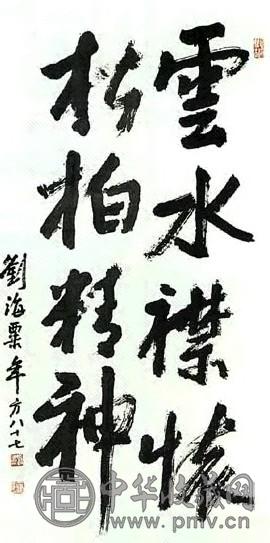 雲水襟懷
松柏精神
劉海粟年方八十七
中华收藏网
www.pmv.cn